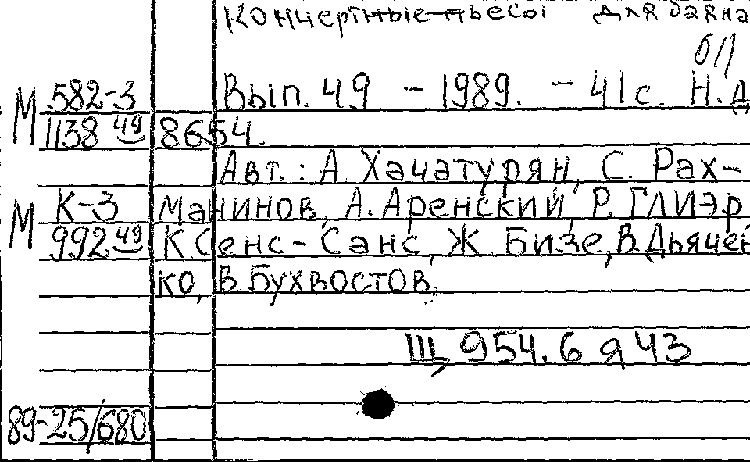 Концертные пьесы для баяна
б/п
М 582-3 Вып. 49 - 1989. - 41 с. Н.д.
1138 49 8654.
Авт.: А. Хачатурян, С. Рах-
М К-3 манинов, А. Аренский, Р. Глиэр
992 49 К Сенс-Санс, Ж Бизе, В. Дьячен
ко, В. Бухвостов.
Щ 954.6 я 43
89-25/680